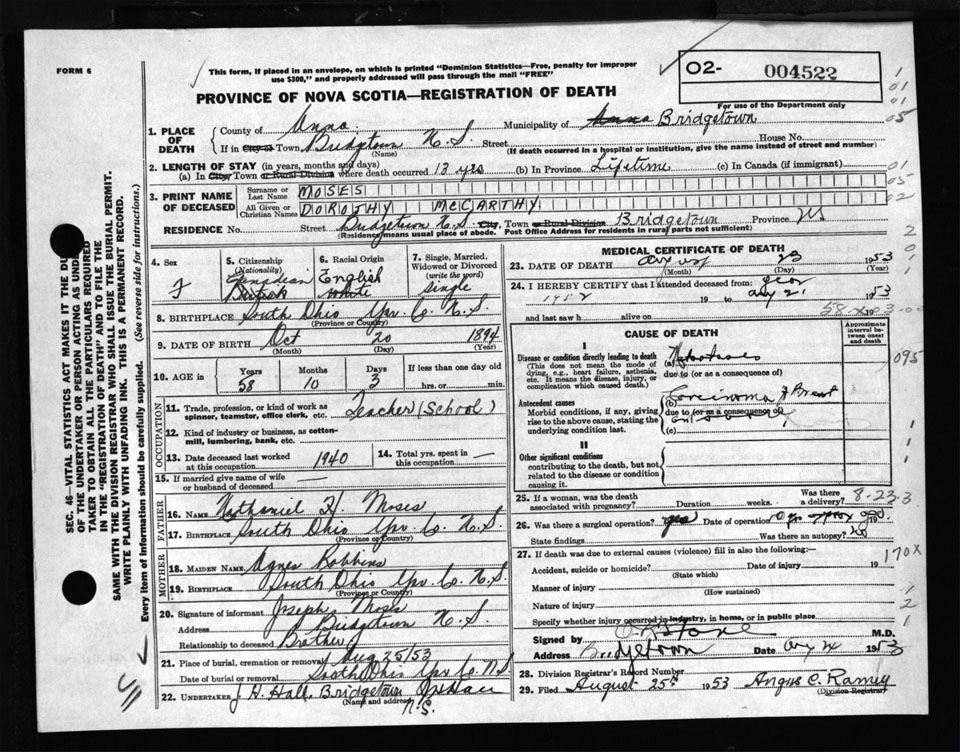 FORM 6
This form, if placed in an envelope, on which is printed "Dominion Statistics—Free, penalty for improper
use $300," and properly addressed will pass through the mail "FREE"
PROVINCE OF NOVA SCOTIA—REGISTRATION OF DEATH
O2- 004522
For use of the Department only
SEC. 46—VITAL STATISTICS ACT MAKES IT THE DU
OF THE UNDERTAKER OR PERSON ACTING AS UND
TAKER TO OBTAIN ALL THE PARTICULARS REQUIRED
IN THE "REGISTRATION OF DEATH" AND TO FILE THE
SAME WITH THE DIVISION REGISTRAR WHO SHALL ISSUE THE BURIAL PERMIT.
WRITE PLAINLY WITH UNFADING INK. THIS IS A PERMANENT RECORD.
Every item of information should be carefully supplied. (See reverse side for instructions.)
1. PLACE OF DEATH
County of Anna. Municipality of Anna Bridgetown
If in City or Town Bridgetown N.S. Street House No.
(Name) (If death occurred in a hospital or institution, give the name instead of street and number)
2. LENGTH OF STAY (in years, months and days)
(a) In City Town or Rural Division where death occurred 13 yrs (b) In Province Lifetime (c) In Canada (if immigrant)
3. PRINT NAME OF DECEASED
Surname or Last Name MOSES
All Given or Christian Names DOROTHY McCARTHY
RESIDENCE No. Street Bridgetown N.S. City, Town or Rural Division Bridgetown Province NS
(Residence means usual place of abode. Post Office Address for residents in rural parts not sufficient)
4. Sex F
5. Citizenship (Nationality) Canadian British
6. Racial Origin English White
7. Single, Married, Widowed or Divorced (write the word) Single
8. BIRTHPLACE South Ohio Yar. Co. N.S.
(Province or Country)
9. DATE OF BIRTH Oct 20 1894
(Month) (Day) (Year)
10. AGE in Years 58 Months 10 Days 3 If less than one day old hrs. or min.
OCCUPATION
11. Trade, profession, or kind of work as spinner, teamster, office clerk, etc. Teacher (School)
12. Kind of industry or business, as cotton-mill, lumbering, bank, etc.
13. Date deceased last worked at this occupation 1940
14. Total yrs. spent in this occupation
15. If married give name of wife or husband of deceased
FATHER
16. NAME Nathaniel H. Moses
17. BIRTHPLACE South Ohio Yar. Co. N.S.
(Province or Country)
MOTHER
18. MAIDEN NAME Agnes Robbins
19. BIRTHPLACE South Ohio Yar. Co. N.S.
(Province or Country)
20. Signature of informant Joseph Moses
Address Bridgetown N.S.
Relationship to deceased Brother
21. Place of burial, cremation or removal
Aug 25/53
Date of burial or removal South Ohio Yar Co N.S.
22. UNDERTAKER J H. Hall Bridgetown
(Name and address)
N.S.
MEDICAL CERTIFICATE OF DEATH
23. DATE OF DEATH August 23 1953
(Month) (Day)
24. I HEREBY CERTIFY that I attended deceased from:
1952 19 to Aug 21 1953
and last saw h alive on 19
CAUSE OF DEATH
Approximate interval between onset and death
I
Disease or condition directly leading to death
(This does not mean the mode of dying, e.g., heart failure, asthenia, etc. It means the disease, injury, or complication which caused death.)
(a)
due to (or as a consequence of)
Antecedent causes
Morbid conditions, if any, giving rise to the above cause, stating the underlying condition last.
(b) Carcinoma of Breast
due to (or as a consequence of)
(c)
II
Other significant conditions
contributing to the death, but not related to the disease or condition causing it.
25. If a woman, was the death associated with pregnancy? Duration weeks. Was there a delivery? 8-23-3
26. Was there a surgical operation? yes Date of operation 19
State findings Was there an autopsy? no
27. If death was due to external causes (violence) fill in also the following:—
Accident, suicide or homicide? Date of injury 19
(State which)
Manner of injury
(How sustained)
Nature of injury
Specify whether injury occurred in industry, in home, or in public place
Signed by M.D.
Address Bridgetown Date Aug 24 1953
28. Division Registrar's Record Number
29. Filed August 25th 1953 Angus C. Ramey
(Division Registrar)
095
170X